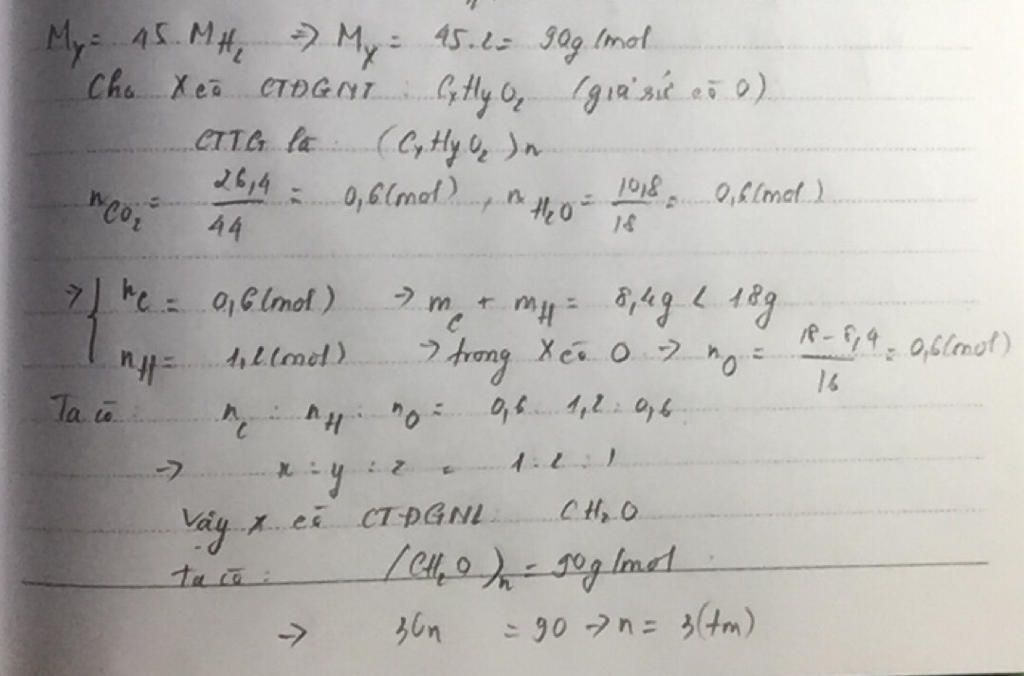 M_X = 45. M_H₂ => M_X = 45.2 = 90g/mol
Cho X có CTĐGNT : CxHyOz (giả sử có O)
CTTG là : (CxHyOz)n
n_CO₂ = 26,4/44 = 0,6(mol) , n_H₂O = 10,8/18 = 0,6(mol)
=> { n_C = 0,6(mol) -> m_C + m_H = 8,4g < 18g
n_H = 1,2(mol) -> trong X có O -> n_O = (18-8,4)/16 = 0,6(mol)
Ta có : n_C : n_H : n_O = 0,6 : 1,2 : 0,6
-> x : y : z = 1 : 2 : 1
Vậy X có CTĐGNL CH₂O
Ta có : (CH₂O)n = 90g/mol
-> 30n = 90 -> n = 3(tm)